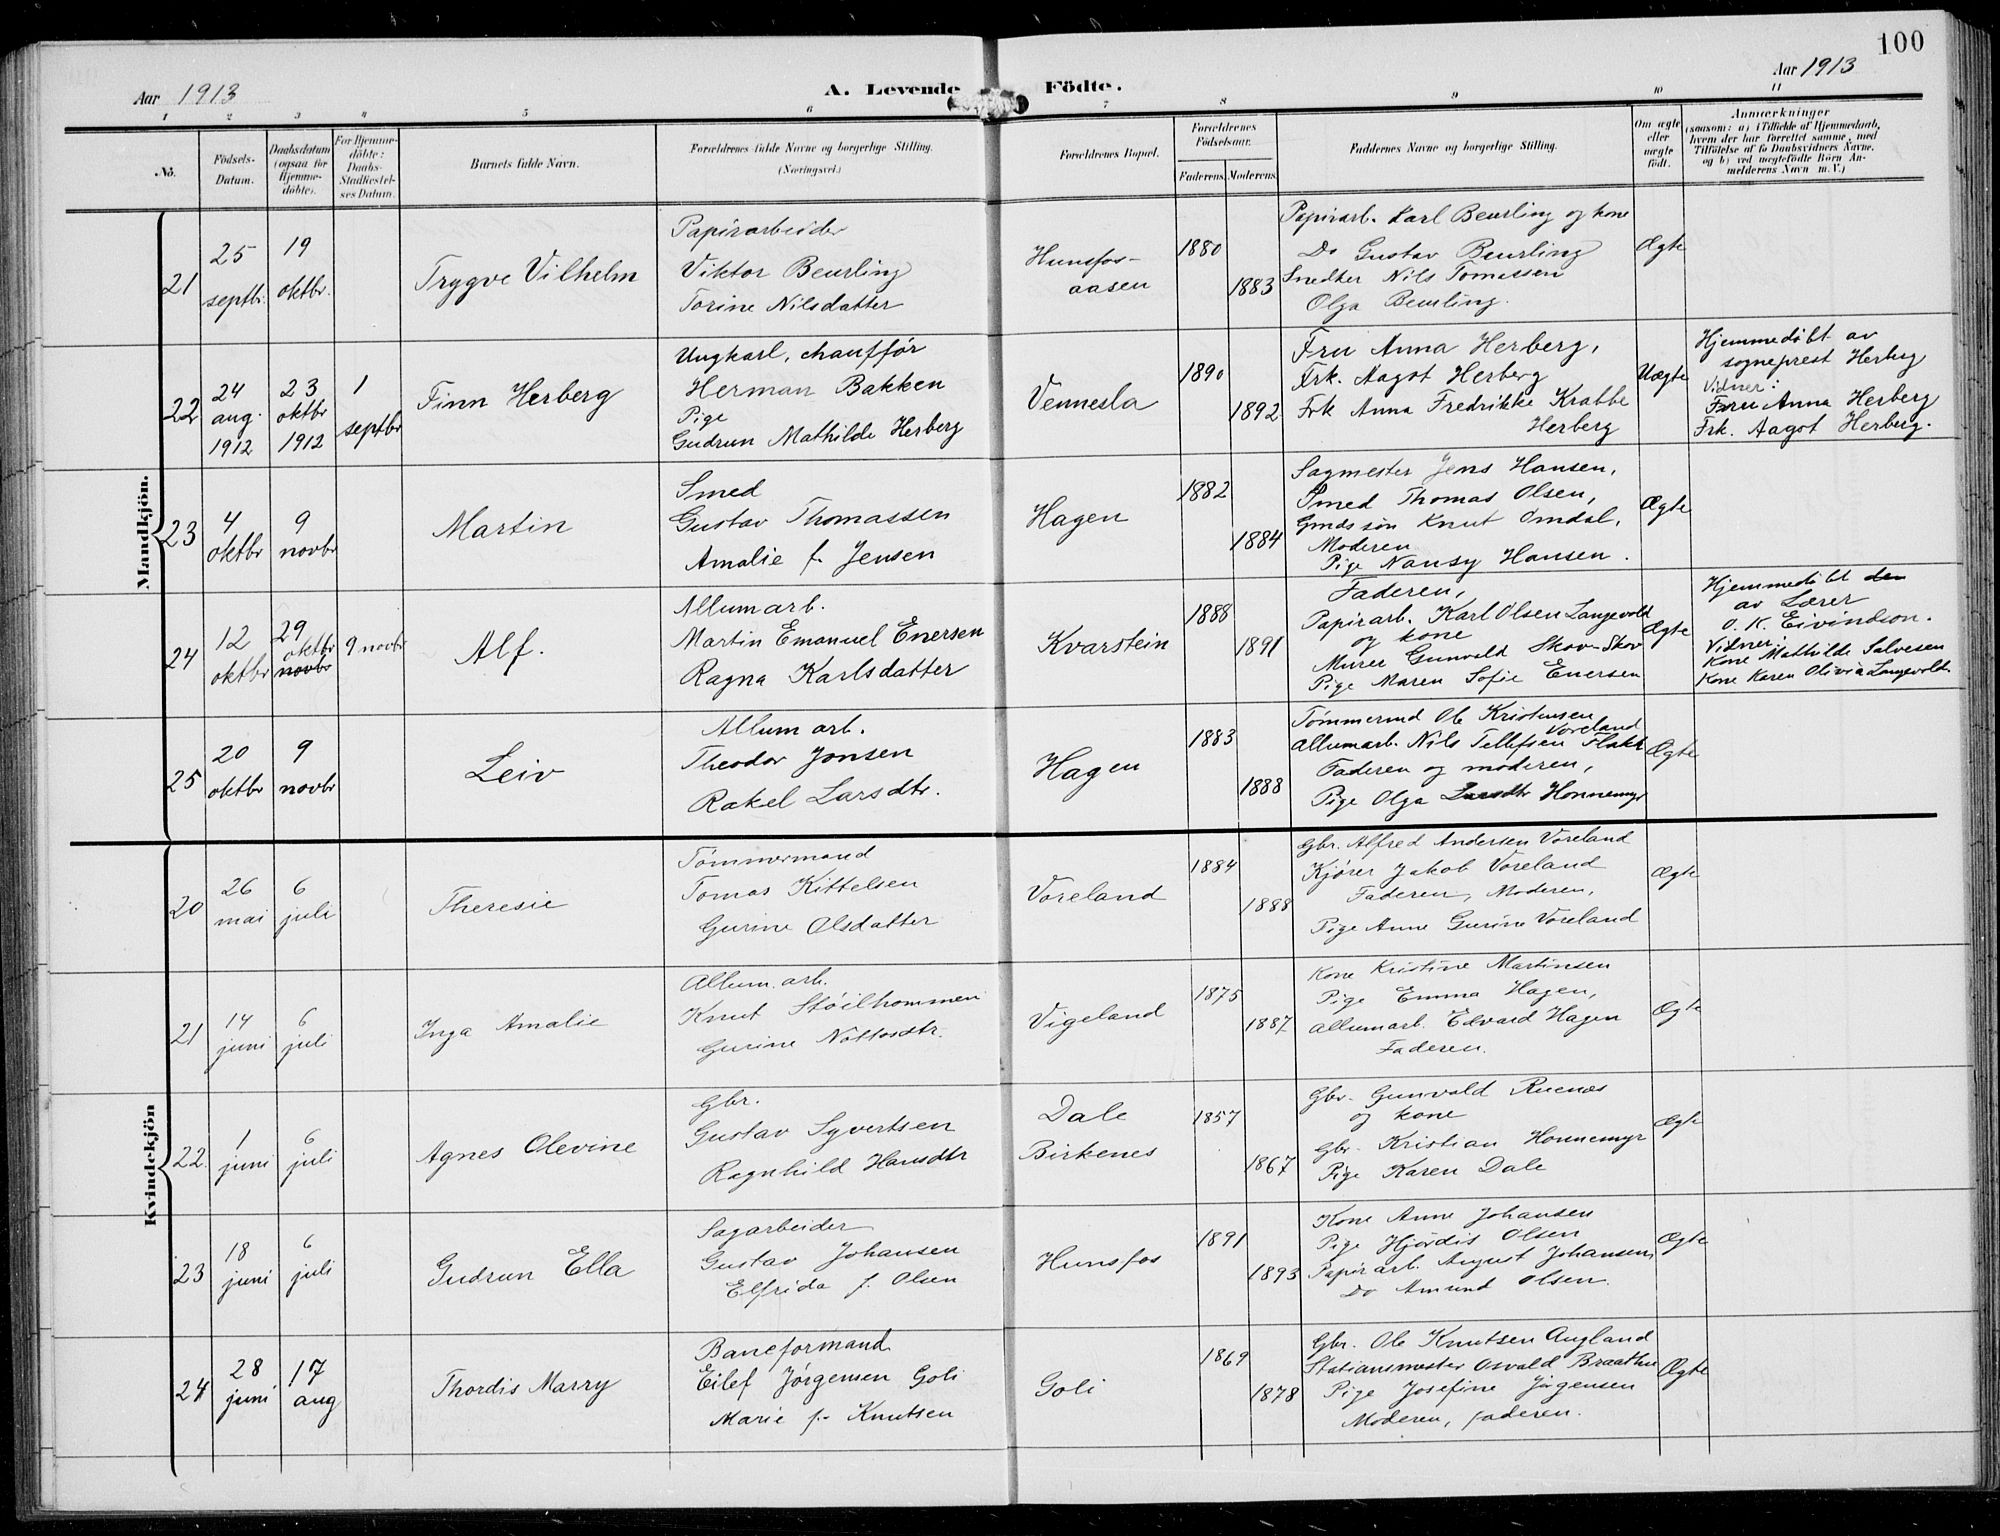 100
Aar 1913
A. Levende Födte.
Aar 1913
1 2 3 4 5 6 7 8 9 10 11
No.
Födsels-Datum.
Daabsdatum (ogsaa for Hjemme-döbte).
For Hjemme-döbte: Daabs-Stadfæstel-ses Datum.
Barnets fulde Navn.
Forældrenes fulde Navne og borgerlige Stilling.
(Næringsvei.)
Forældrenes Bopæl.
Forældrenes Fødselsaar.
Faderens. Moderens.
Faddernes Navne og borgerlige Stilling.
Om ægte eller uægte født.
Anmærkninger
(saasom: a) i Tilfælde af Hjemmedaab, hvem der har forrettet samme, med Tilföielse af to Daabsvidners Navne, og b) ved uægtefødte Børn An-melderens Navn m. V.)
Mandkjön.
21
25 septbr.
19 oktbr.
Trygve Vilhelm
Papirarbeider
Viktor Beurling
Torine Nilsdatter
Hunsfos-
aasen
1880
1883
Papirarb. Karl Beurling og kone
Do Gustav Beurling
Snedker Nils Tomassen
Olga Beurling.
Ægte
22
24 aug. 1912
23 oktbr 1912
1 septbr
Finn Herberg
Ungkarl, chauffør
Herman Bakken
Pige
Gudrun Mathilde Herberg
Vennesla
1890
1892
Fru Anna Herberg,
Frk. Aagot Herberg
Frk Anna Fredrikke Krabbe
Herberg
Uægte
Hjemmedøbt av
sogneprest Herberg
Vidner:
Fru Anna Herberg
Frk. Aagot Herberg.
23
4 oktbr
9 novbr
Martin
Smed
Gustav Thomassen
Amalie f. Jensen
Hagen
1882
1884
Sagmester Jens Hansen,
Smed Thomas Olsen,
Gmds søn Knut Omdal,
Moderen
Pige Nansy Hansen.
Ægte
24
12 oktbr
29 oktbr novbr
9 novbr
Alf.
Allumarb.
Martin Emanuel Enersen
Ragna Karlsdatter
Kvarstein
1888
1891
Faderen,
Papirarb. Karl Olsen Langevold
og kone
Murer Gunvald Skov-Skov
Pige Maren Sofie Enersen
Ægte
Hjemmedøbt den
av Lærer
O. K. Eivindson.
Vidner:
Kone Mathilde Salvesen
Kone Karen Olivia Langevold
25
20 oktbr
9 novbr
Leiv
Allumarb.
Theodor Jonsen
Rakel Larsdtr.
Hagen
1883
1888
Tømmermd Ole Kristensen
Voreland
Allumarb. Nils Tellefsen Flakk
Faderen og moderen,
Pige Olga Larsdtr Honnemyr
Ægte
Kvindekjön
20
26 mai
6 juli
Theresie
Tømmermand
Tomas Kittelsen
Gurine Olsdatter
Voreland
1884
1888
Gbr. Alfred Andersen Voreland
Kjører Jakob Voreland
Faderen, Moderen,
Pige Anne Gurine Voreland
Ægte
21
14 juni
6 juli
Inga Amalie
Allum.arb.
Knut Støilhommen
Gurine Nottosdtr.
Vigeland
1875
1887
Kone Kristine Martinsen
Pige Emma Hagen,
Allumarb. Edvard Hagen
Faderen.
Ægte
22
1 juni
6 juli
Agnes Olevine
Gbr.
Gustav Syvertsen
Ragnhild Hansdtr
Dale
Birkenes
1857
1867
Gbr. Gunvald Ruenæs
og kone
Gbr. Kristian Honnemyr
Pige Karen Dale
Ægte
23
18 juni
6 juli
Gudrun Ella
Sagarbeider
Gustav Johansen
Elfrida f. Olsen
Hunsfos
1891
1893
Kone Anne Johansen
Pige Hjørdis Olsen
Papirarb. August Johansen,
Do Amund Olsen.
Ægte
24
28 juni
17 aug
Thordis Marry
Baneformand
Eilef Jørgensen Goli
Marie f. Knutsen
Goli
1869
1878
Gbr. Ole Knutsen Augland
Stationsmester Osvald Braathu
Pige Josefine Jørgensen
Moderen, faderen.
Ægte